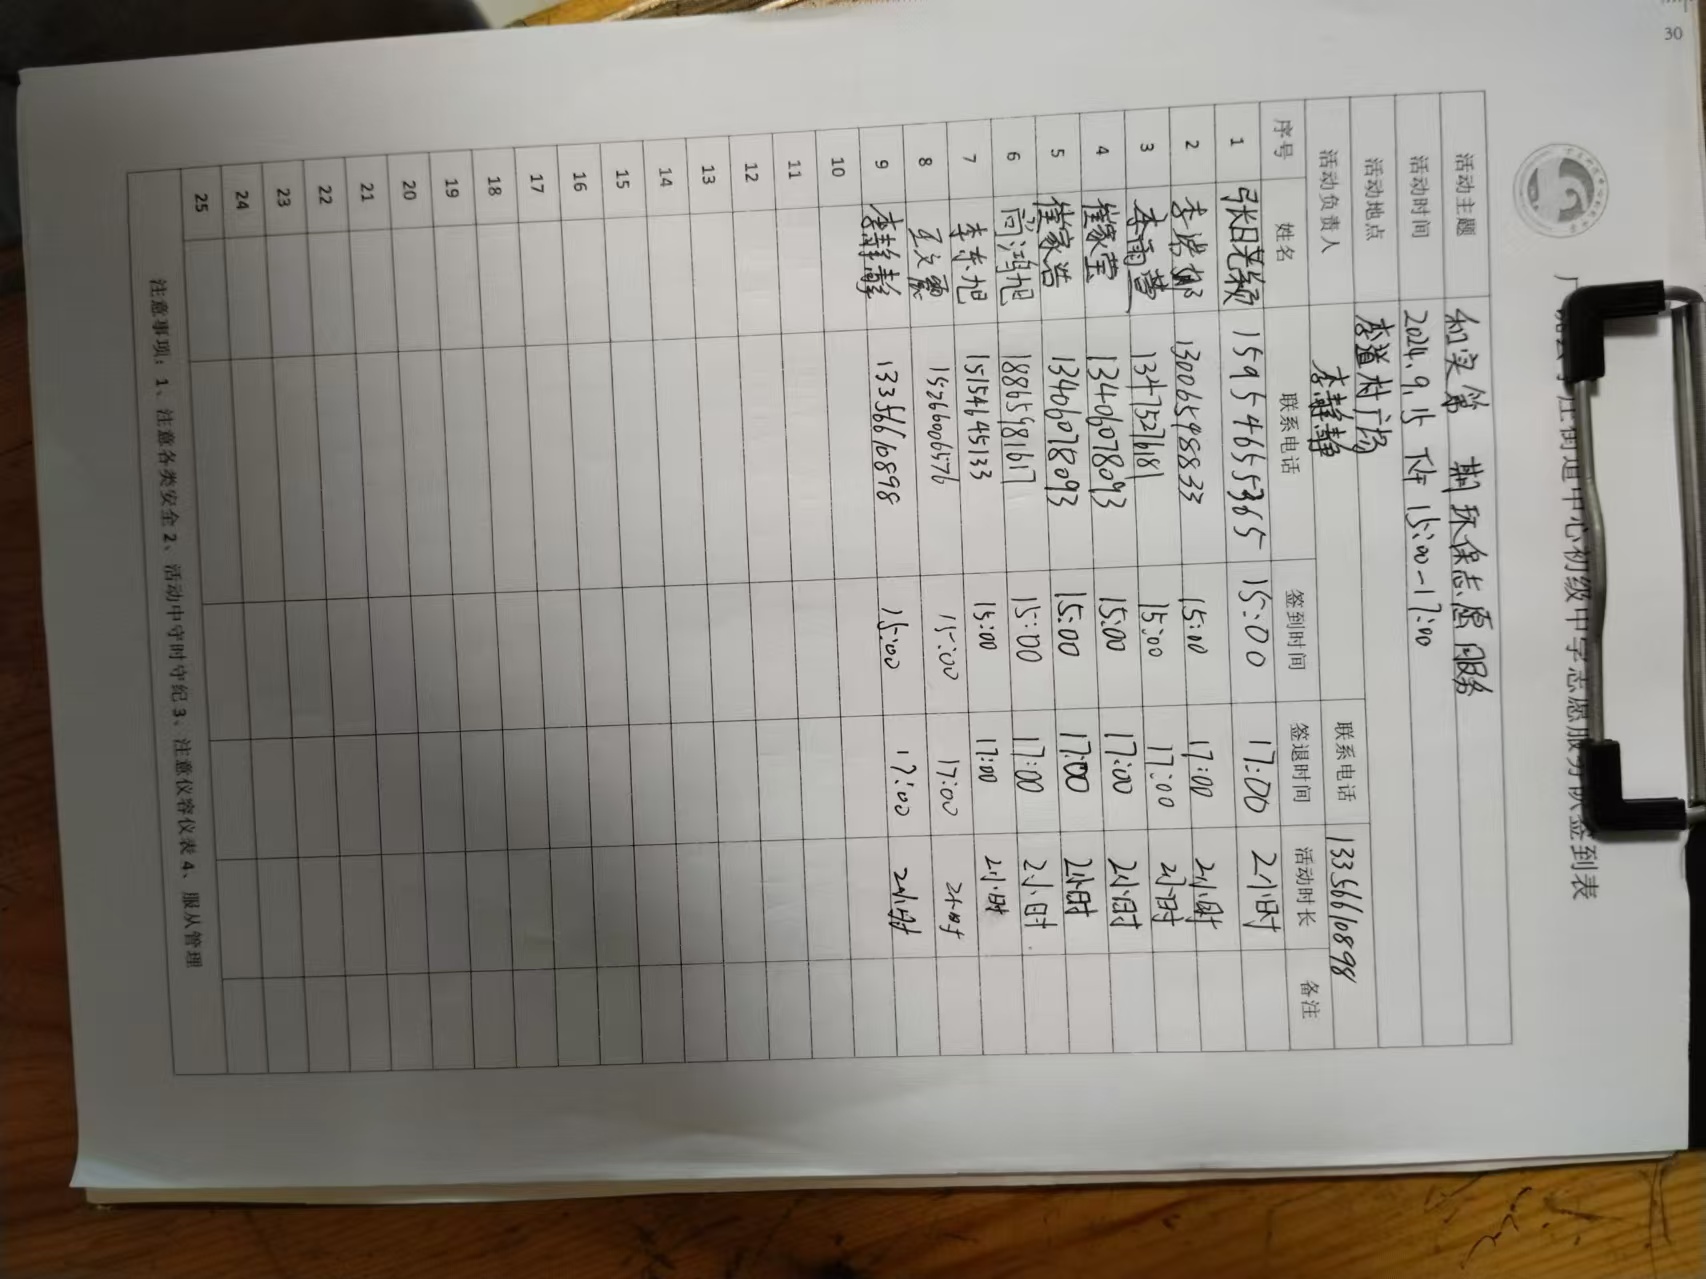 30
街道中心初级中学志愿服务队签到表
活动主题 和实第 期环保志愿服务
活动时间 2024.9.15 下午 15:00-17:00
活动地点 李道村广场
活动负责人 李静静 联系电话 13356610898
序号 姓名 联系电话 签到时间 签退时间 活动时长 备注
1 张晨颖 15954655365 15:00 17:00 2小时
2 13006548833 15:00 17:00 2小时
3 李雨萱 13475276181 15:00 17:00 2小时
4 崔家莹 13406078093 15:00 17:00 2小时
5 崔家浩 13406078093 15:00 17:00 2小时
6 高鸿旭 18865481617 15:00 17:00 2小时
7 李东旭 15154645133 15:00 17:00 2小时
8 15266006576 15:00 17:00 2小时
9 李静静 13356610898 15:00 17:00 2小时
10
11
12
13
14
15
16
17
18
19
20
21
22
23
24
25
注意事项：1、注意各类安全2、活动中守时守纪3、注意仪容仪表4、服从管理